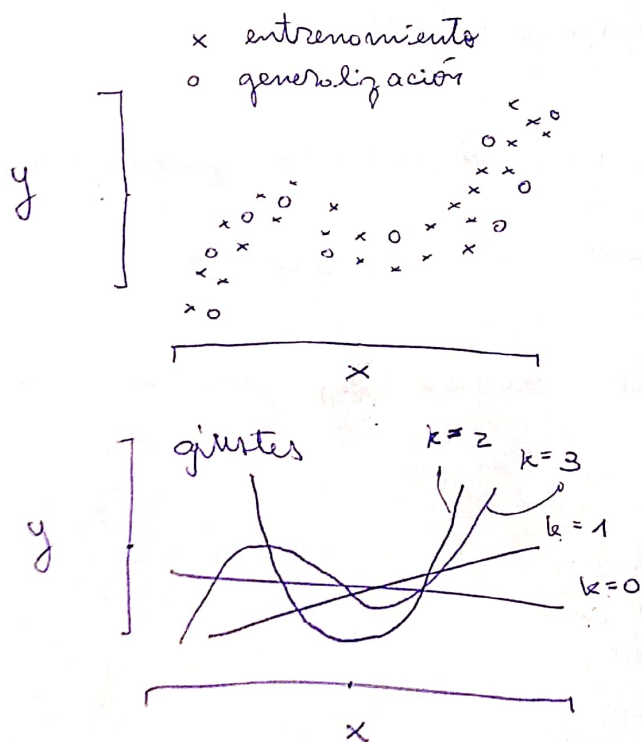 x entrenamiento
o generalización
y
x
ajustes
k=2
k=3
k=1
k=0
y
x